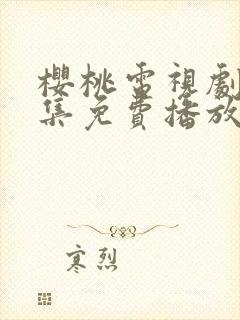 櫻桃電視劇
集免費播放
寒烈